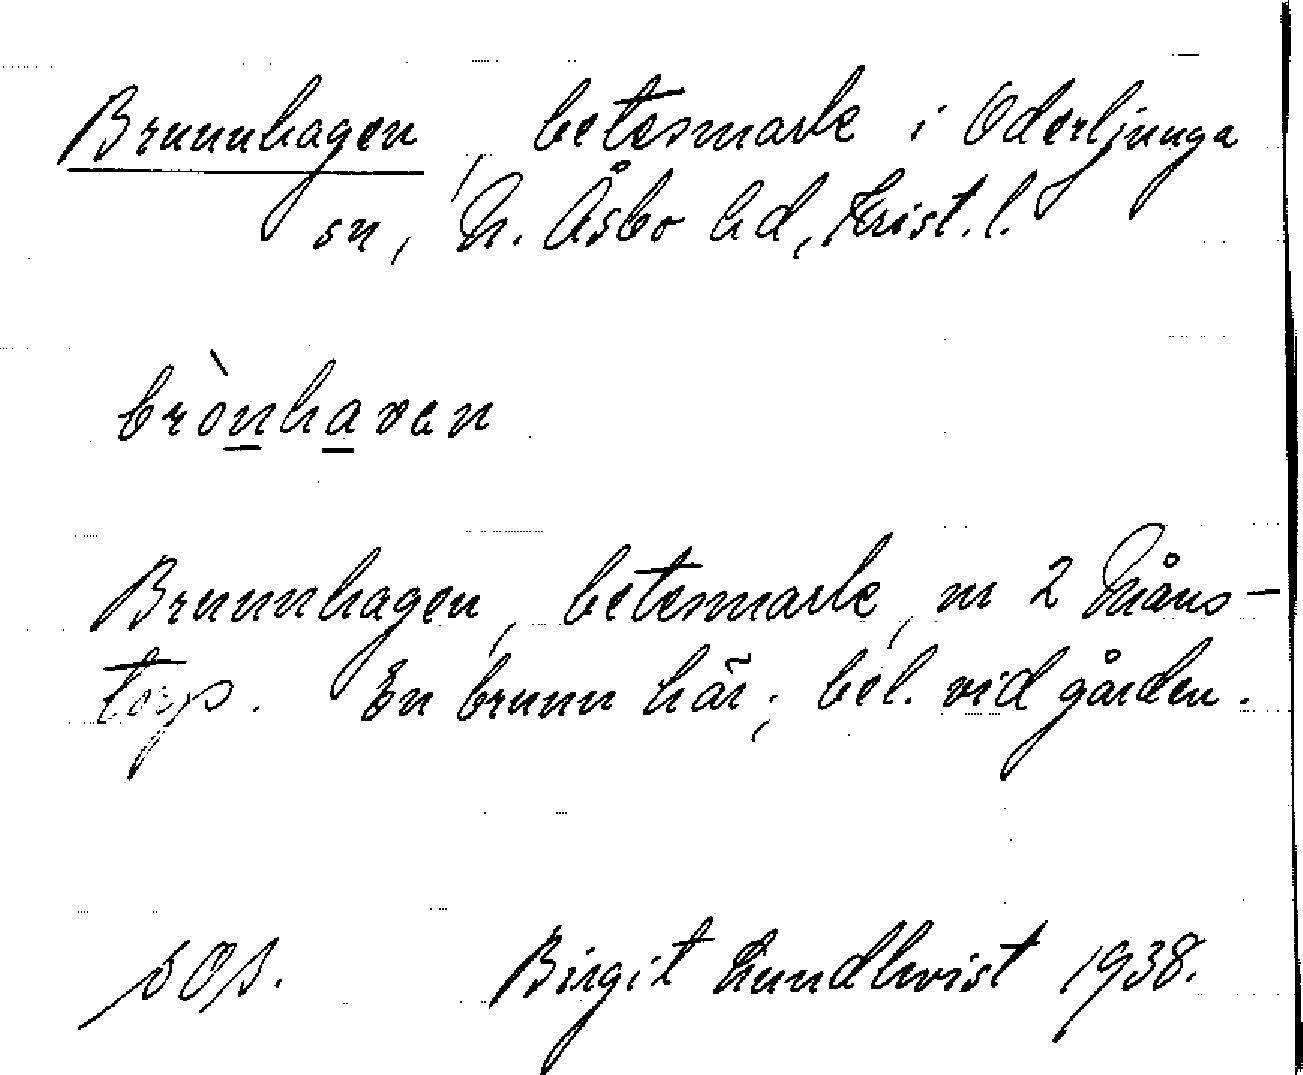 Brunnhagen, betesmark i Oderljunga
sn, N. Åsbo hd, Krist. l.
brònhaven
Brunnhagen, betesmark, nr 2 Måns-
torp. En brunn här; bel. vid gården.
Birgit Lundkvist 1938.